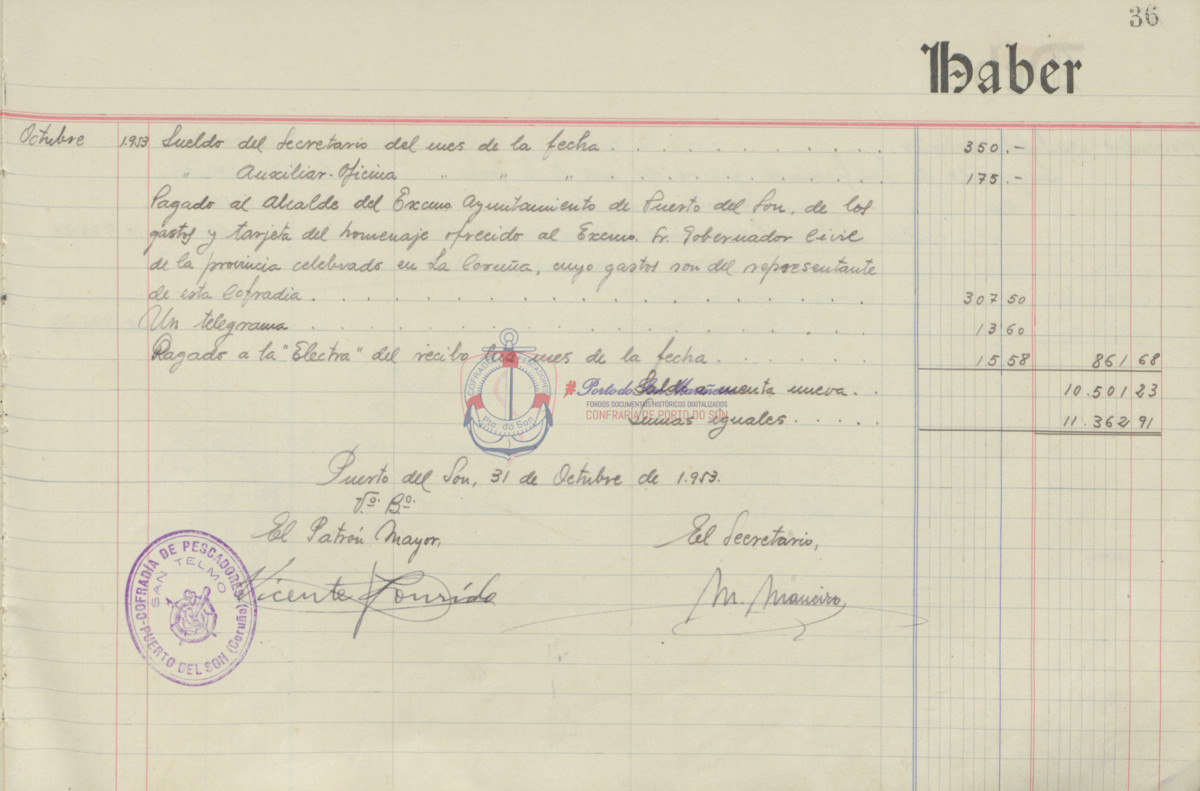 36
Haber
Octubre 1.953 Sueldo del Secretario del mes de la fecha . . . . . . . . . . 350.-
" Auxiliar-Oficina " " " . . . . . . . . . . 175.-
Pagado al Alcalde del Excmo Ayuntamiento de Puerto del Son, de los
gastos y tarjeta del homenaje ofrecido al Excmo. Sr. Gobernador Civil
de la provincia celebrado en La Coruña, cuyo gastos son del representante
de esta Cofradia . . . . . . . . . . . . . . . . 307 50
Un telegrama . . . . . . . . . . . . . . . . 13 60
Pagado a la "Electra" del recibo mes de la fecha . . . . . . 15 58 861 68
Saldo a cuenta nueva . . 10.501 23
Sumas iguales . . . . . 11.362 91
COFRADÍA PESCADORES
Pto. do Son
#Porto do Son
FONDOS DOCUMENTAIS HISTÓRICOS DIGITALIZADOS
CONFRARÍA DE PORTO DO SON
Puerto del Son, 31 de Octubre de 1.953.
Vº. Bº.
El Patrón Mayor, El Secretario,
Vicente M. Maneiro
COFRADÍA DE PESCADORES
SAN TELMO
PUERTO DEL SON (Coruña)